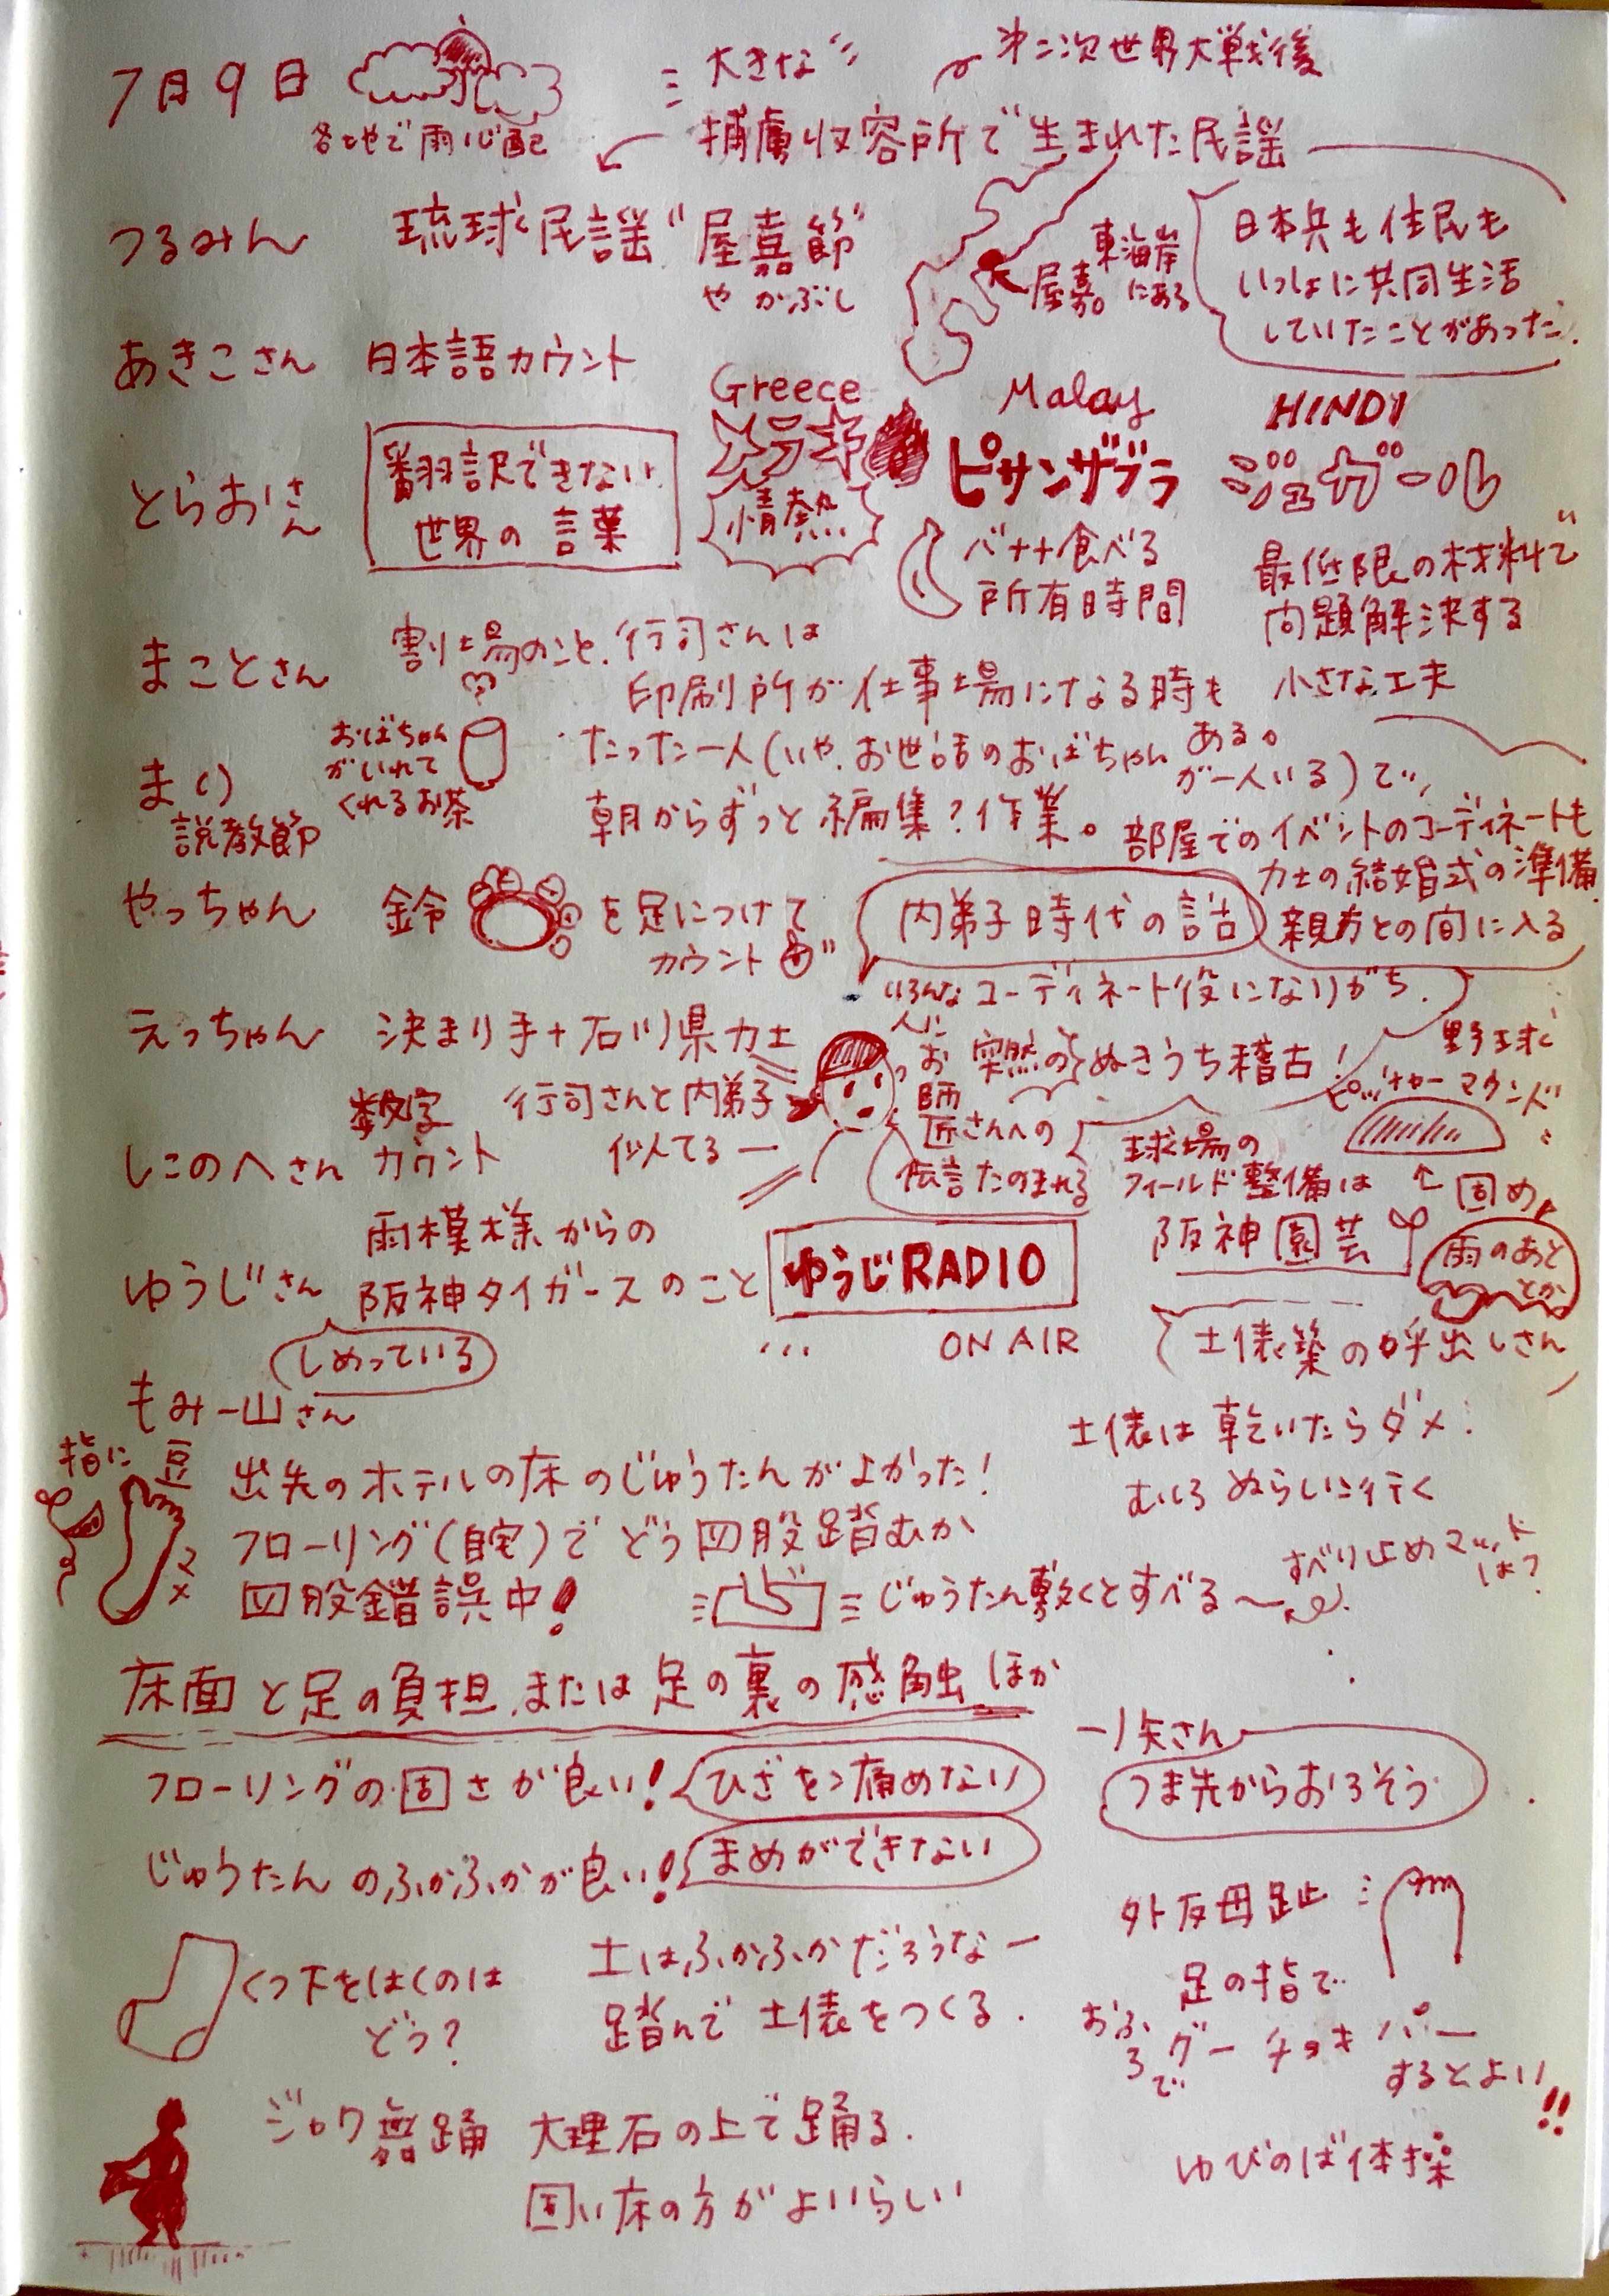 7月9日
各地で雨心配
大きな
第二次世界大戦後
捕虜収容所で生まれた民謡
つるみん
琉球民謡"屋嘉節"
やかぶし
屋嘉。
東海岸
にある
日本兵も住民も
いっしょに共同生活
していたことがあった。
あきこさん 日本語カウント
とらおさん
翻訳できない
世界の言葉
Greece
メラキ
情熱
Malay
ピサンザプラ
バナナ食べる
所有時間
HINDI
ジュガール
最低限の材料で
問題解決する
小さな工夫
まことさん
割場のこと、行司さんは
印刷所が仕事場になる時も
ある。
まり
説教節
おばちゃん
がいれて
くれるお茶
たった一人(いや、お世話のおばちゃん
が一人いる)で、
朝からずっと編集?作業。
部屋でのイベントのコーディネートも
力士の結婚式の準備
親方との間に入る
やっちゃん
鈴を足につけて
カウント
内弟子時代の話
いろんなコーディネート役になりがち.
人に
えっちゃん 決まり手+石川県力士
お師匠さんへの
伝言たのまれる
突然のぬきうち稽古!
行司さんと内弟子
似てるー
しこのへさん
数字
カウント
野球
ピッチャーマウンド
球場の
フィールド整備は
阪神園芸
固め
雨のあと
とか
ゆうじさん
雨模様からの
阪神タイガースのこと
ゆうじRADIO
...
ON AIR
しめっている
土俵築の呼出しさん
土俵は乾いたらダメ!
むしろぬらしに行く
もみー山さん
指に豆
出先のホテルの床のじゅうたんがよかった!
フローリング(自宅)でどう四股踏むか
四股錯誤中!
じゅうたん敷くとすべる〜
すべり止めマット
は?
床面と足の負担、または足の裏の感触ほか
フローリングの固さが良い!
ひざを痛めない
じゅうたんのふかふかが良い!
まめができない
一ノ矢さん
つま先からおろそう
くつ下をはくのは
どう?
土はふかふかだろうなー
踏んで土俵をつくる.
外反母趾
足の指で
おふろで
グーチョキパー
するとよい!!
ゆびのば体操
ジャワ舞踊 大理石の上で踊る.
固い床の方がよいらしい